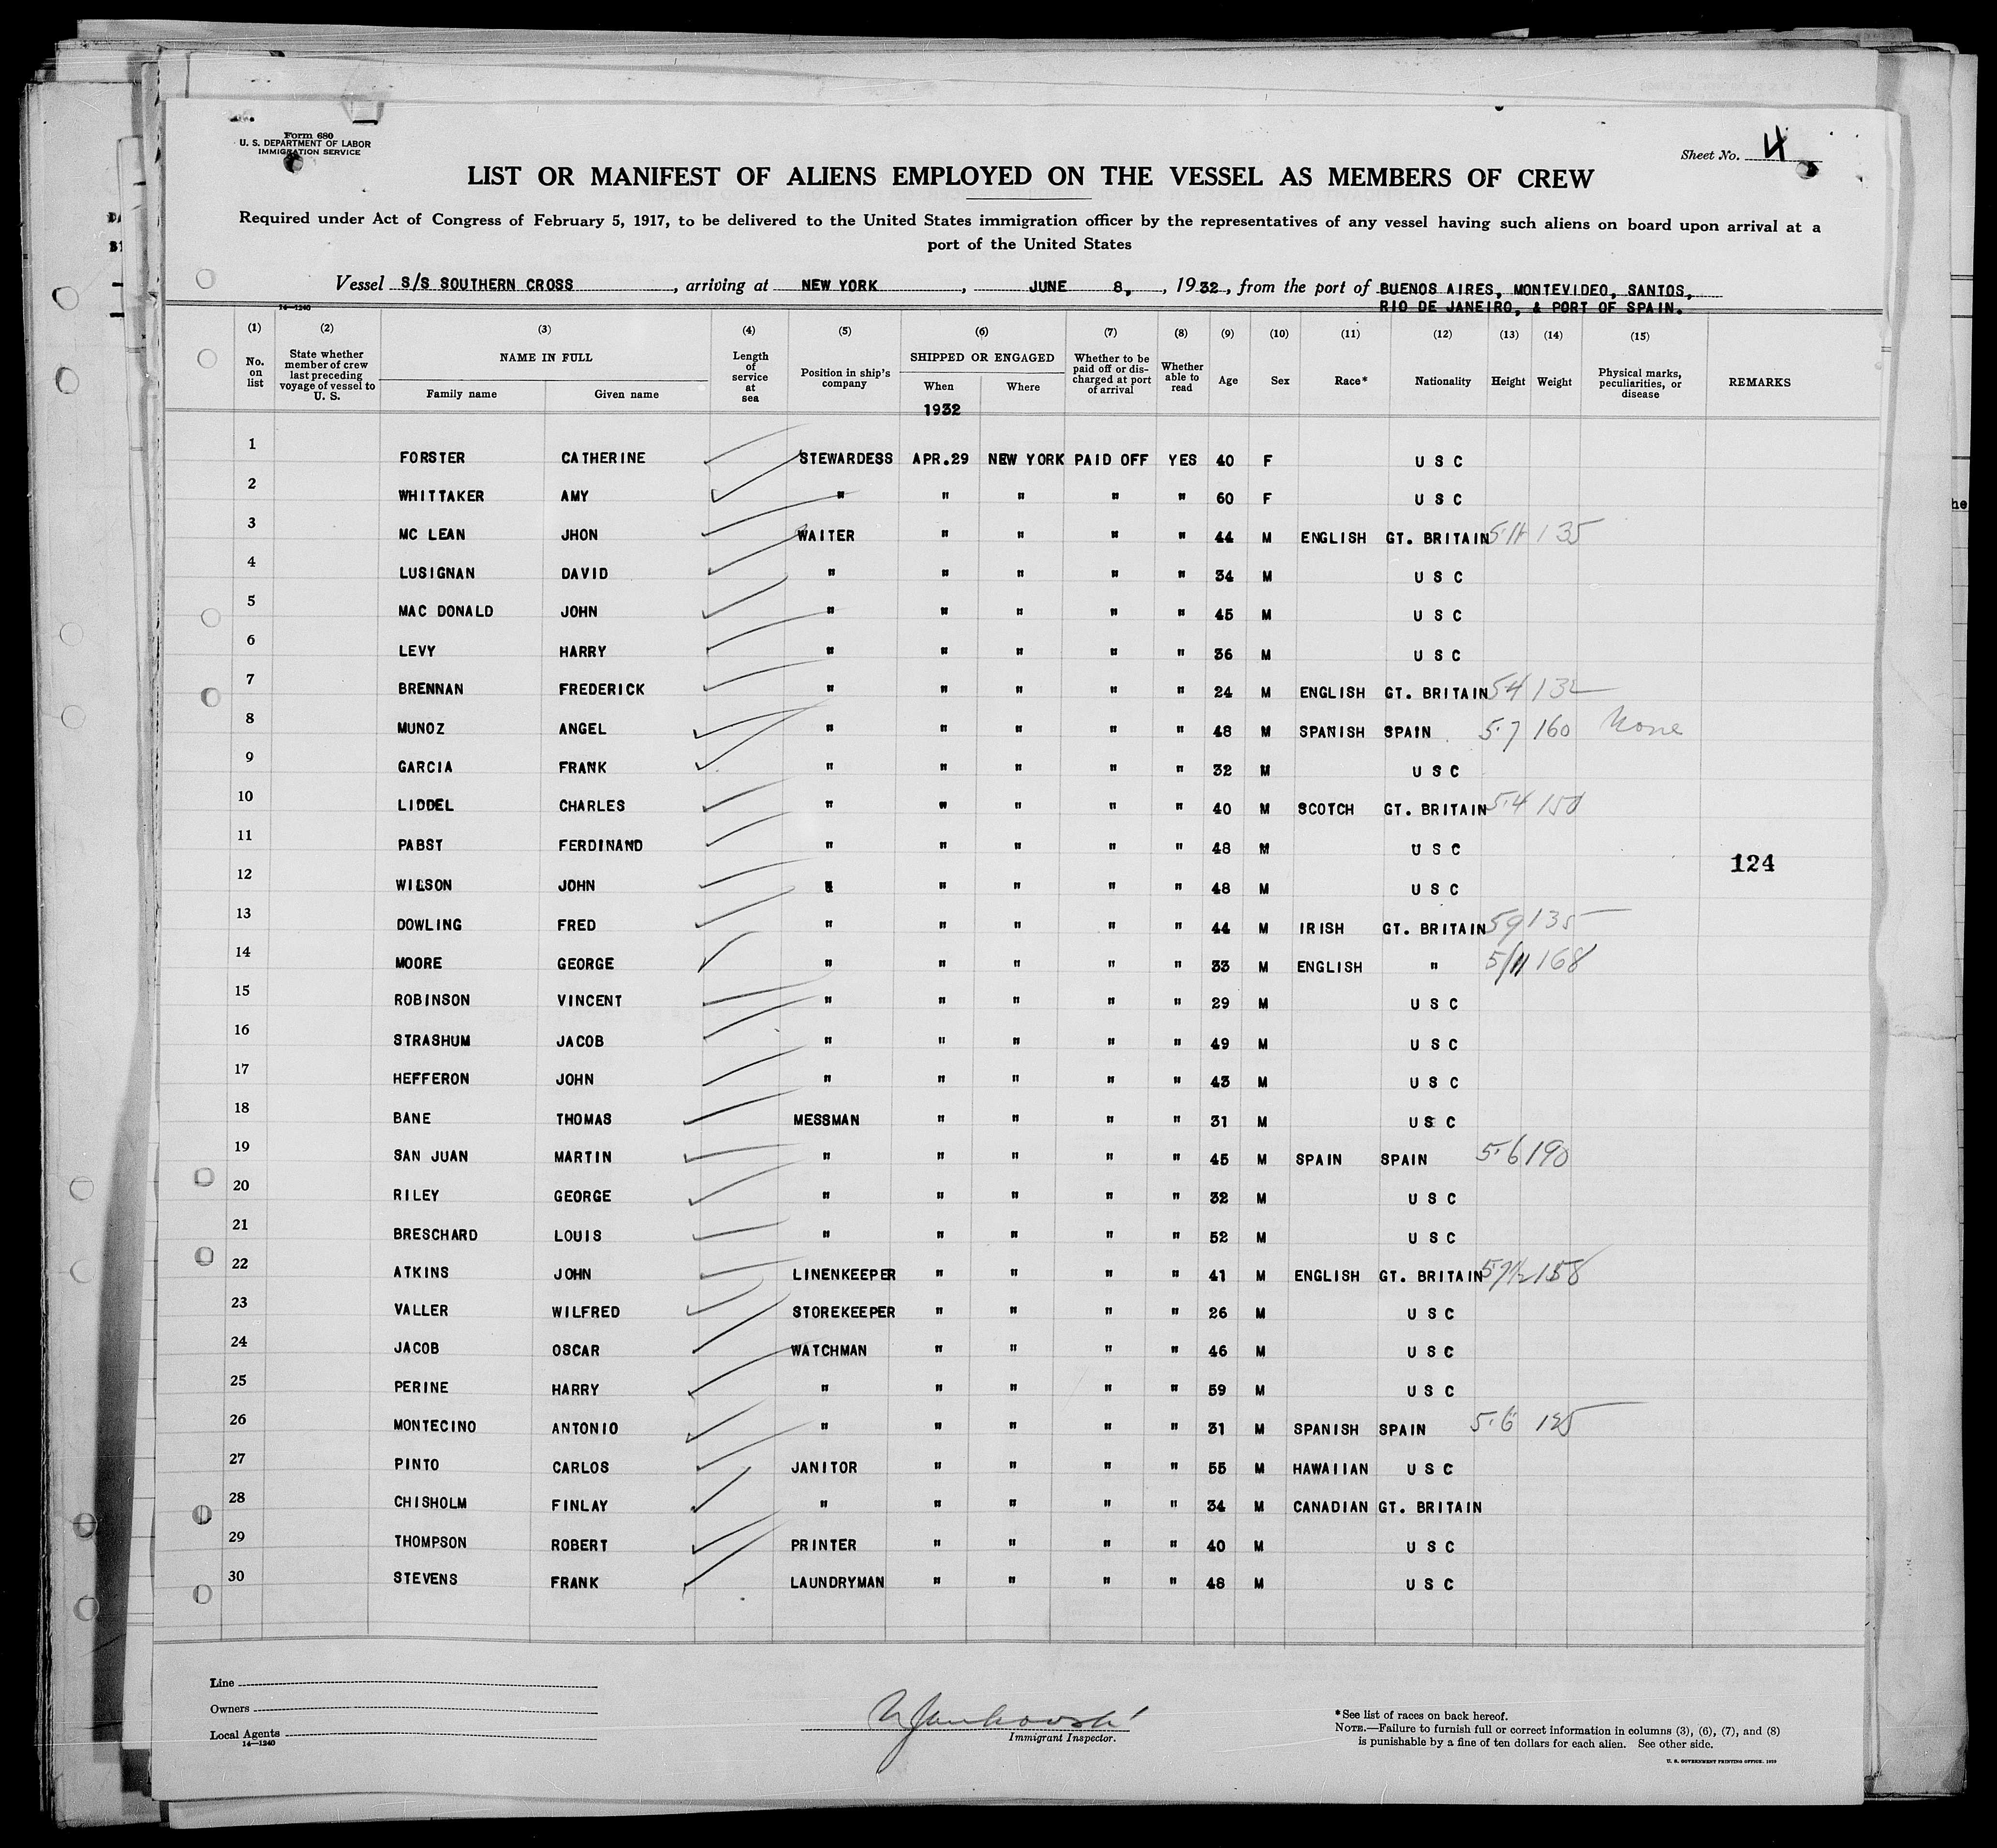 Form 680
U. S. DEPARTMENT OF LABOR
IMMIGRATION SERVICE
Sheet No. 4
LIST OR MANIFEST OF ALIENS EMPLOYED ON THE VESSEL AS MEMBERS OF CREW
Required under Act of Congress of February 5, 1917, to be delivered to the United States immigration officer by the representatives of any vessel having such aliens on board upon arrival at a
port of the United States
Vessel S/S SOUTHERN CROSS, arriving at NEW YORK, JUNE 8, 1932, from the port of BUENOS AIRES, MONTEVIDEO, SANTOS,
RIO DE JANEIRO, & PORT OF SPAIN.
14—1240
(1) (2) (3) (4) (5) (6) (7) (8) (9) (10) (11) (12) (13) (14) (15)
No. on list State whether member of crew last preceding voyage of vessel to U. S. NAME IN FULL Family name Given name Length of service at sea Position in ship's company SHIPPED OR ENGAGED When Where Whether to be paid off or discharged at port of arrival Whether able to read Age Sex Race* Nationality Height Weight Physical marks, peculiarities, or disease REMARKS
1932
1 FORSTER CATHERINE STEWARDESS APR.29 NEW YORK PAID OFF YES 40 F U S C
2 WHITTAKER AMY " " " " " 60 F U S C
3 MC LEAN JHON WAITER " " " " 44 M ENGLISH GT. BRITAIN 135
4 LUSIGNAN DAVID " " " " " 34 M U S C
5 MAC DONALD JOHN " " " " " 45 M U S C
6 LEVY HARRY " " " " " 36 M U S C
7 BRENNAN FREDERICK " " " " " 24 M ENGLISH GT. BRITAIN 54 132
8 MUNOZ ANGEL " " " " " 48 M SPANISH SPAIN 5.7 160 None
9 GARCIA FRANK " " " " " 32 M U S C
10 LIDDEL CHARLES " " " " " 40 M SCOTCH GT. BRITAIN 5.4 150
11 PABST FERDINAND " " " " " 48 M U S C
124
12 WILSON JOHN " " " " " 48 M U S C
13 DOWLING FRED " " " " " 44 M IRISH GT. BRITAIN 59 135
14 MOORE GEORGE " " " " " 33 M ENGLISH " 5/11 168
15 ROBINSON VINCENT " " " " " 29 M U S C
16 STRASHUM JACOB " " " " " 49 M U S C
17 HEFFERON JOHN " " " " " 43 M U S C
18 BANE THOMAS MESSMAN " " " " 31 M U S C
19 SAN JUAN MARTIN " " " " " 45 M SPAIN SPAIN 5.6 190
20 RILEY GEORGE " " " " " 32 M U S C
21 BRESCHARD LOUIS " " " " " 52 M U S C
22 ATKINS JOHN LINENKEEPER " " " " 41 M ENGLISH GT. BRITAIN 57½ 158
23 VALLER WILFRED STOREKEEPER " " " " 26 M U S C
24 JACOB OSCAR WATCHMAN " " " " 46 M U S C
25 PERINE HARRY " " " " " 59 M U S C
26 MONTECINO ANTONIO " " " " " 31 M SPANISH SPAIN 5.6
27 PINTO CARLOS JANITOR " " " " 55 M HAWAIIAN U S C
28 CHISHOLM FINLAY " " " " " 34 M CANADIAN GT. BRITAIN
29 THOMPSON ROBERT PRINTER " " " " 40 M U S C
30 STEVENS FRANK LAUNDRYMAN " " " " 48 M U S C
Line
Owners
Local Agents
14—1240
Immigrant Inspector.
*See list of races on back hereof.
NOTE.—Failure to furnish full or correct information in columns (3), (6), (7), and (8)
is punishable by a fine of ten dollars for each alien. See other side.
U. S. GOVERNMENT PRINTING OFFICE: 1929